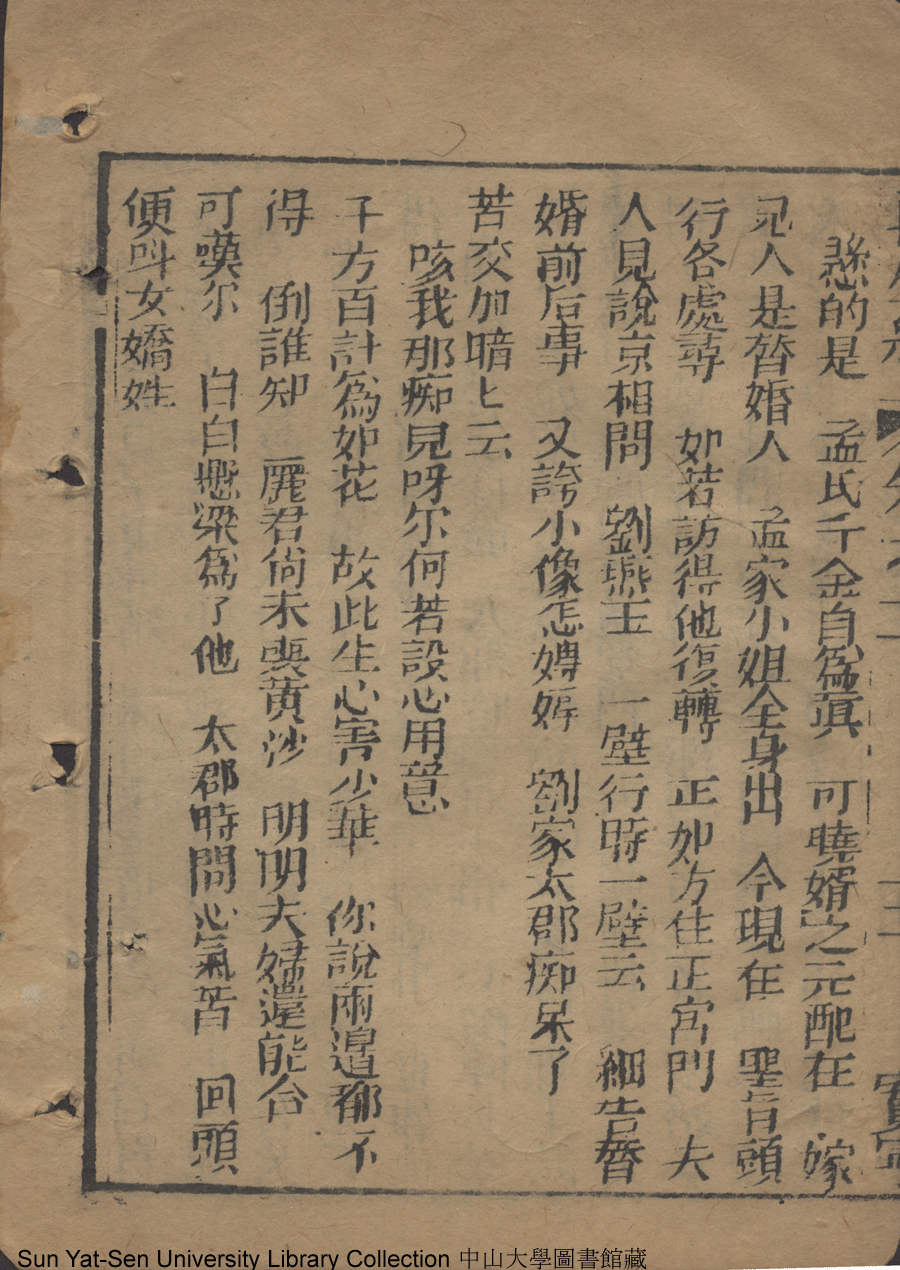 懸的是　孟氏千金自爲眞　可曉婿之元配在　嫁
児人是替婚人　孟家小姐全身出　今現在　聖旨頭
行各處尋　如若訪得他復轉　正如方住正宮門　夫
人見說京相問　劉燕玉　一壁行時一壁云　細告替
婚前后事　又誇小像怎娉婷　劉家太郡痴呆了
苦交加暗匕云
咳我那痴見呀尔何若設心用意
千方百計爲如花　故此生心害少華　你說兩邉都不
得　倒誰知　麗君尙未喪黃沙　明明夫婦還能合
可嘆尔　白白懸梁爲了他　太郡時問心氣苦　回頭
便叫女嬌姓
Sun Yat-Sen University Library Collection 中山大學圖書館藏